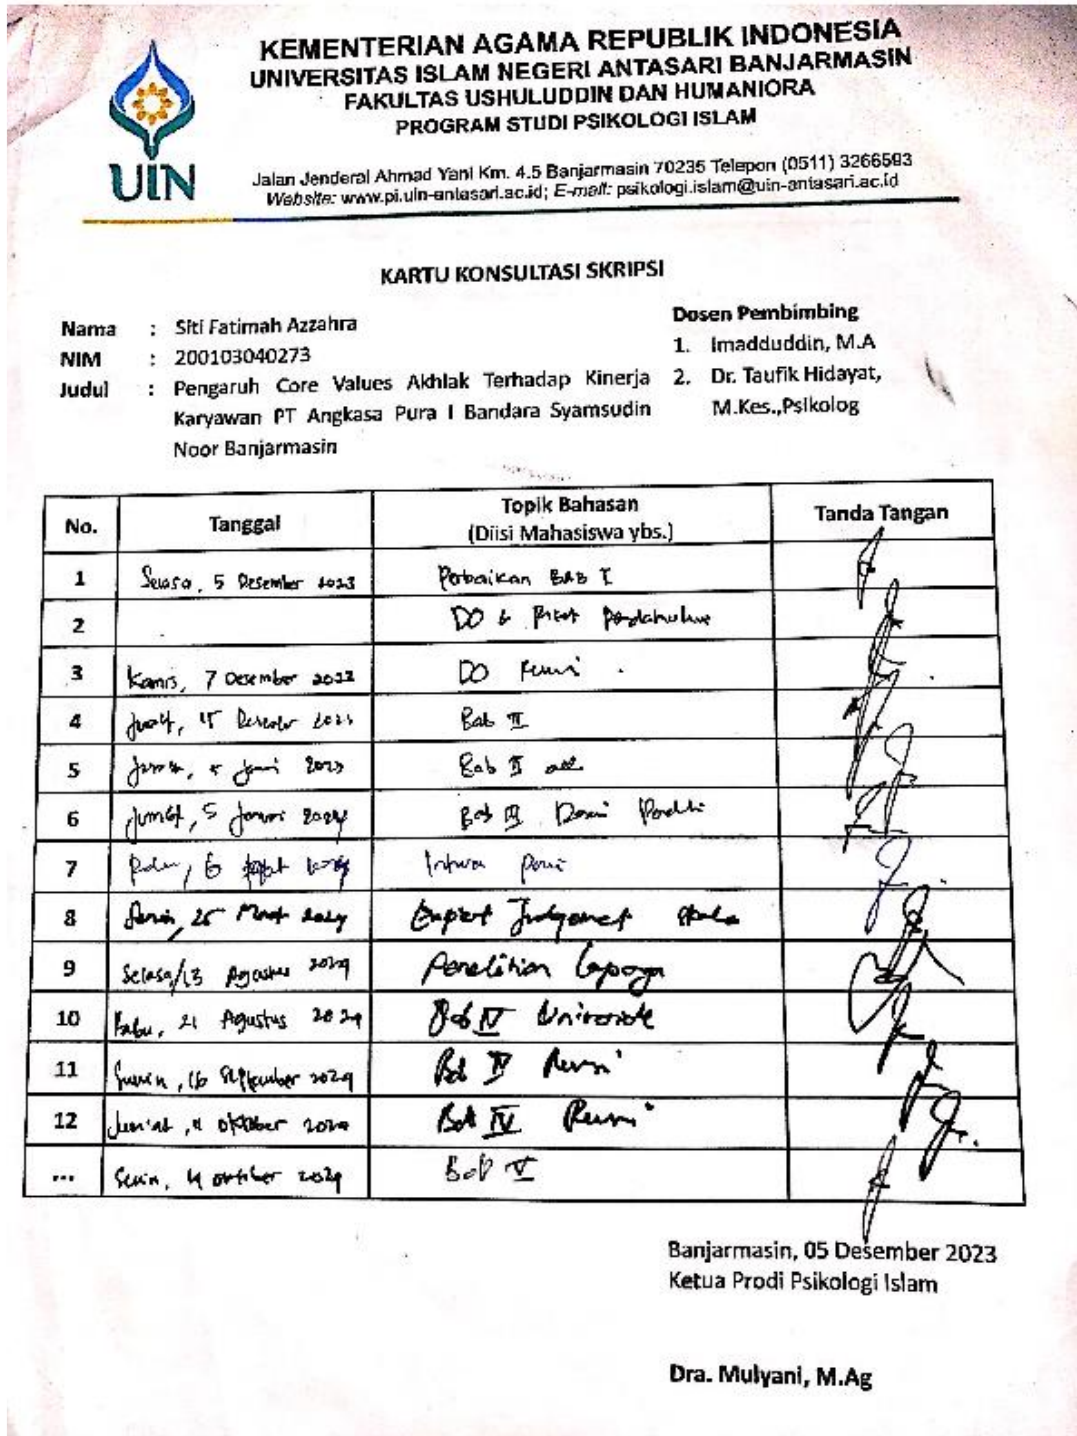 KEMENTERIAN AGAMA REPUBLIK INDONESIA
UNIVERSITAS ISLAM NEGERI ANTASARI BANJARMASIN
FAKULTAS USHULUDDIN DAN HUMANIORA
PROGRAM STUDI PSIKOLOGI ISLAM
UIN
Jalan Jenderal Ahmad Yani Km. 4.5 Banjarmasin 70235 Telepon (0511) 3266593
Website: www.pi.uin-antasari.ac.id; E-mail: psikologi.islam@uin-antasari.ac.id
KARTU KONSULTASI SKRIPSI
Nama : Siti Fatimah Azzahra
NIM : 200103040273
Judul : Pengaruh Core Values Akhlak Terhadap Kinerja
Karyawan PT Angkasa Pura I Bandara Syamsudin
Noor Banjarmasin
Dosen Pembimbing
1. Imadduddin, M.A
2. Dr. Taufik Hidayat,
M.Kes.,Psikolog
No. Tanggal Topik Bahasan Tanda Tangan
(Diisi Mahasiswa ybs.)
1 Selasa, 5 Desember 2023 Perbaikan BAB I
2 DO &
3 Kamis, 7 Desember DO
4 Bab
5 Bab
6 Jumat, 5 2024 Bab III
7 6
8 Senin, 25 2024 Expert Judgement
9 Selasa/13 Agustus 2024 Penelitian
10 Rabu, 21 Agustus 2024 Bab IV
11 Senin, 16 September 2024 IV Revisi
12 Jum'at, Oktober Bab IV Revisi
... Senin, Bab V
Banjarmasin, 05 Desember 2023
Ketua Prodi Psikologi Islam
Dra. Mulyani, M.Ag